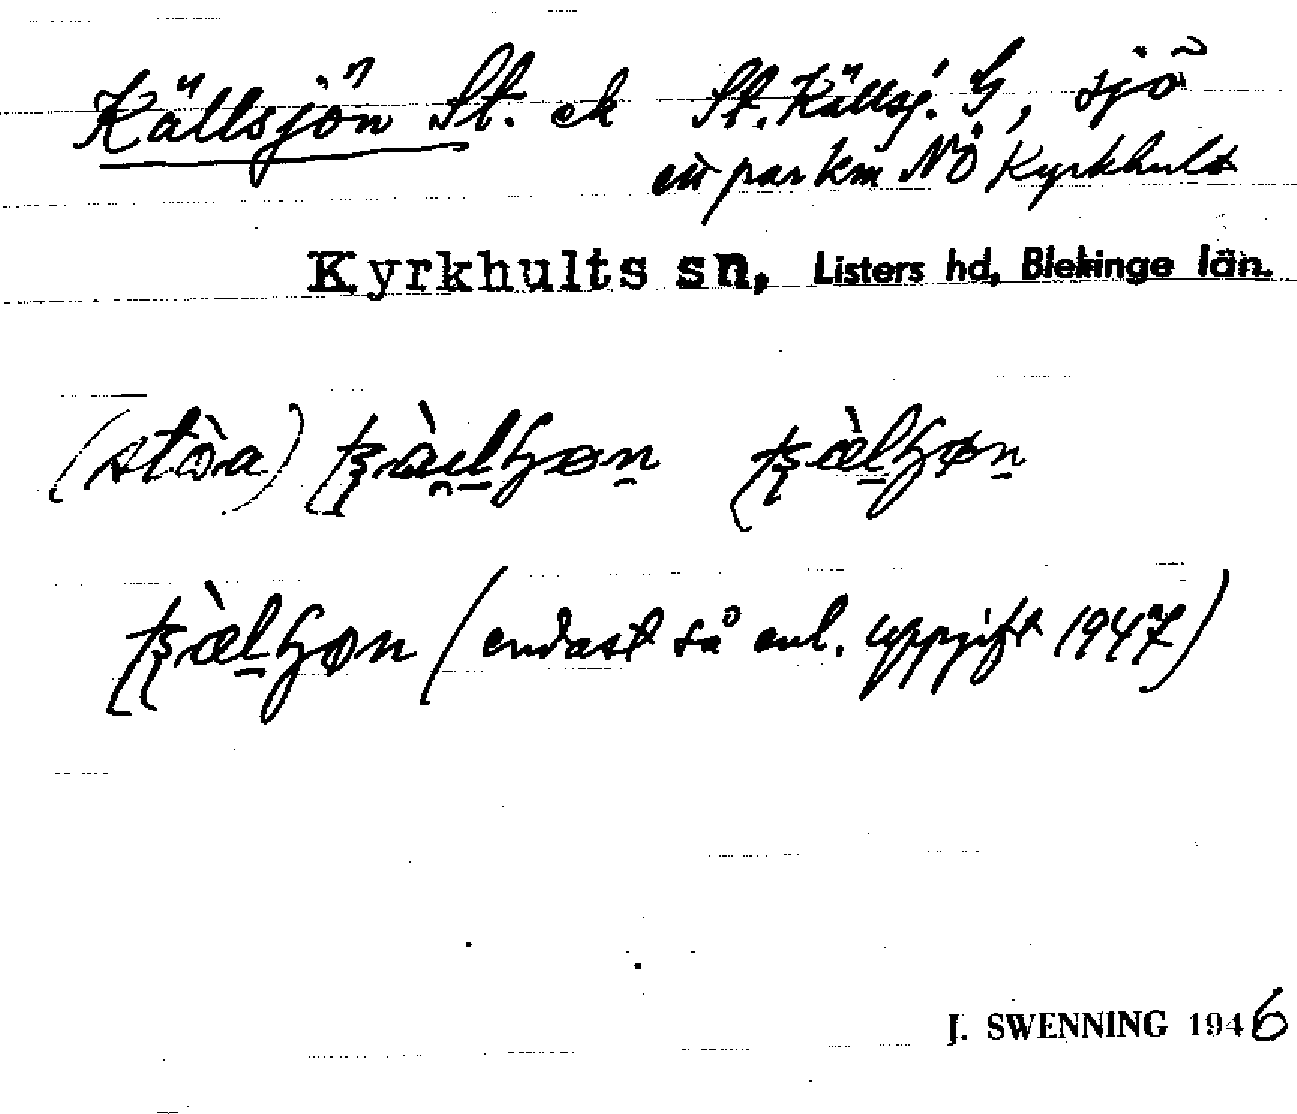 Källsjön St. ek St. Källsj. G, sjö
ett par km NÖ Kyrkhult
Kyrkhults sn, Listers hd, Blekinge län.
(stòa)
(endast så enl. uppgift 1947)
J. SWENNING 1946